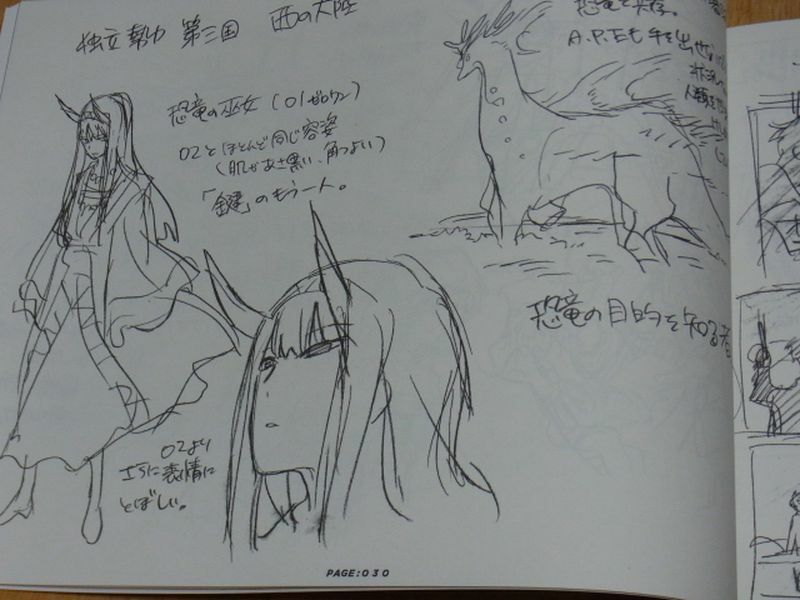 独立勢力 第三国 西の大陸
恐竜の巫女(01ゼロワン)
02とほとんど同じ容姿
(肌があさ黒い、角つよい)
「鍵」のもう一人。
恐竜と共存。
A.P.Eも手を出せない
恐竜の目的を知る者
02より
さらに表情に
とぼしい。
PAGE:030